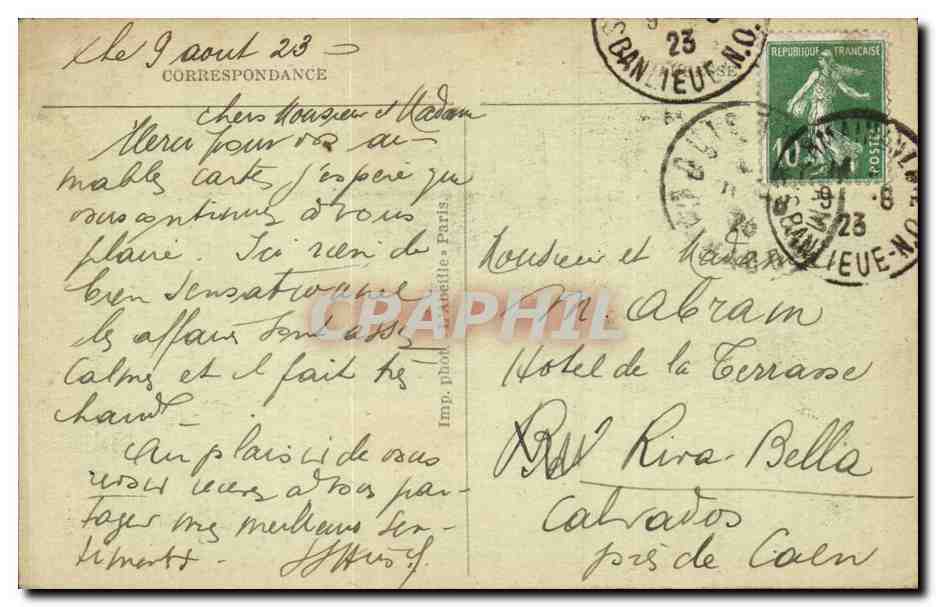 le 9 aout 23
CORRESPONDANCE
chers Monsieur et Madam
Merci pour vos ai-
mables cartes j'espère que
vous continuez à vous
plaire. Ici rien de
bien sensationnel
les affaires sont assez
calmes et il fait très
chaud
Au plaisir de vous
revoir recevez à vous par-
tager mes meilleurs sen-
timents
Imp. phot. « L'Abeille » Paris.
23
BANLIEUE-N.O.
REPUBLIQUE FRANÇAISE
10
POSTES
9 8
23
BANLIEUE-N.O.
Monsieur et Madam
M. Abram
Hotel de la Terrasse
Riva-Bella
Calvados
près de Caen
CPAPHIL